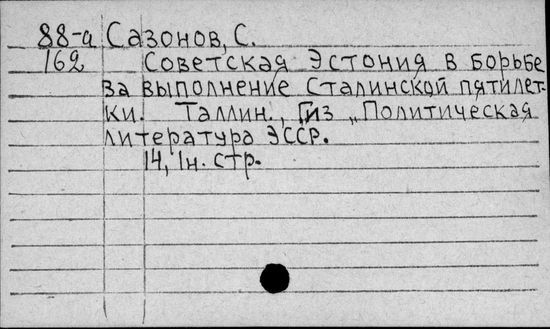 88-а Сазонов, С.
162 Советская Эстония в борьбе
за выполнение Сталинской пятилет-
ки. Таллин., Гиз „Политическая
литература ЭССР.
14, 1н. стр.